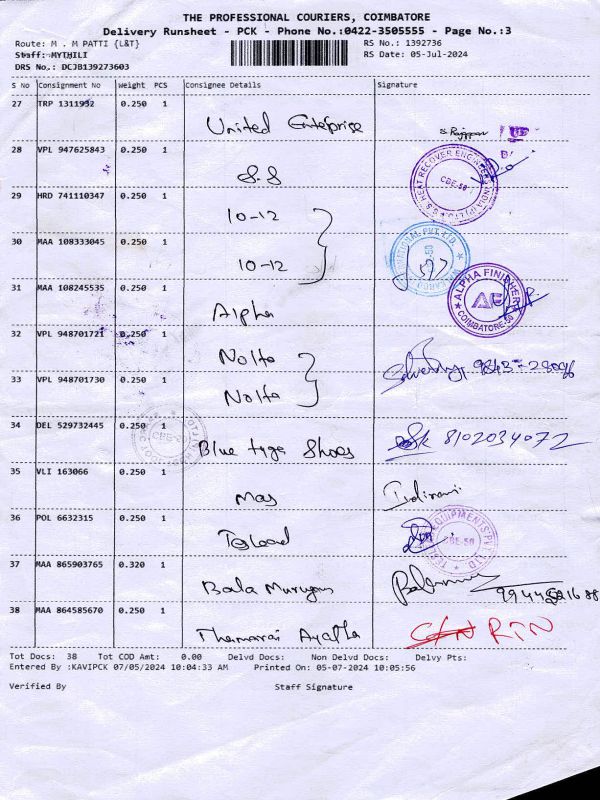 THE PROFESSIONAL COURIERS, COIMBATORE
Delivery Runsheet - PCK - Phone No.:0422-3505555 - Page No.:3
Route: M . M PATTI {L&T} RS No.: 1392736
Staff: MYTHILI RS Date: 05-Jul-2024
DRS No.: DCJB139273603
S No Consignment No Weight PCS Consignee Details Signature
27 TRP 1311932 0.250 1 United Enteprise
28 VPL 947625843 0.250 1 8.8 HEAT RECOVER ENGINEER INDIA CBE-50
29 HRD 741110347 0.250 1 10-12
30 MAA 108333045 0.250 1 10-12 NATIONAL PVT.LTD.
31 MAA 108245535 0.250 1 Alpha ALPHA FINISHERS AF COIMBATORE-50
32 VPL 948701721 0.250 1 Nolta
33 VPL 948701730 0.250 1 Nolta
34 DEL 529732445 0.250 1 Blue tyga Shoes 8102034072
35 VLI 163066 0.250 1 Mas
36 POL 6632315 0.250 1 EQUIPMENTS PVT LTD CBE-50
37 MAA 865903765 0.320 1 Bala Murugan
38 MAA 864585670 0.250 1 C/N RTN
Tot Docs: 38 Tot COD Amt: 0.00 Delvd Docs: Non Delvd Docs: Delvy Pts:
Entered By :KAVIPCK 07/05/2024 10:04:33 AM Printed On: 05-07-2024 10:05:56
Verified By Staff Signature